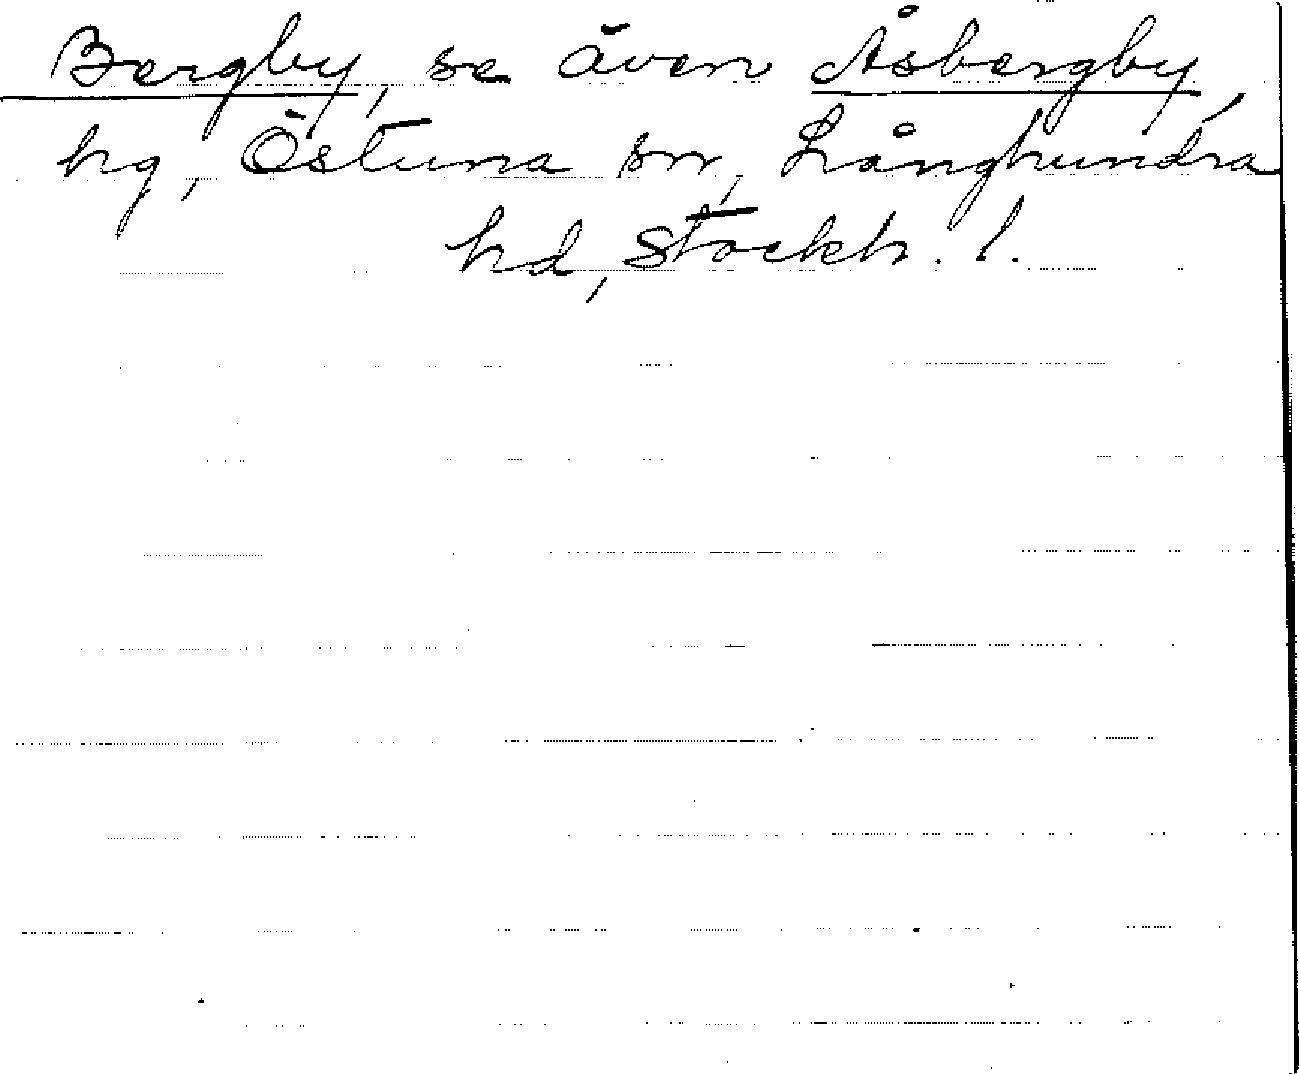 Bergby, se även Åsbergby,
hg, Östuna sn, Långhundra
hd, Stockh. l.